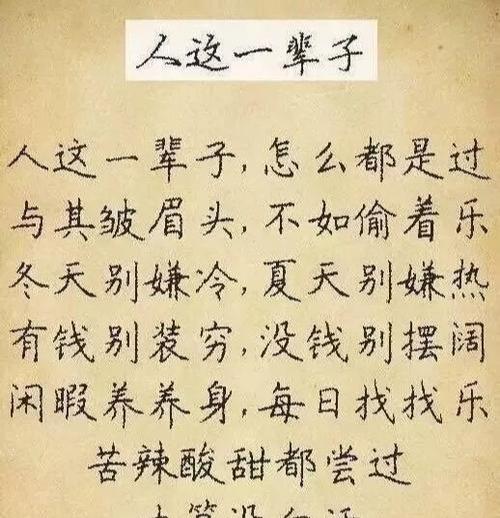 人这一辈子
人这一辈子，怎么都是过
与其皱眉头，不如偷着乐
冬天别嫌冷，夏天别嫌热
有钱别装穷，没钱别摆阔
闲暇养养身，每日找找乐
苦辣酸甜都尝过